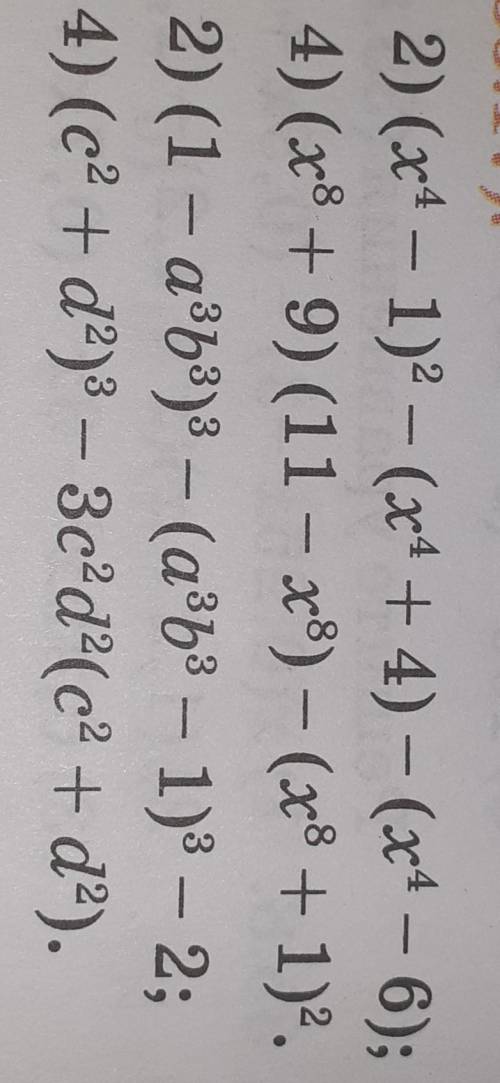 2) (x⁴ − 1)² − (x⁴ + 4) − (x⁴ − 6);
4) (x⁸ + 9) (11 − x⁸) − (x⁸ + 1)².
2) (1 − a³b³)³ − (a³b³ − 1)³ − 2;
4) (c² + d²)³ − 3c²d²(c² + d²).